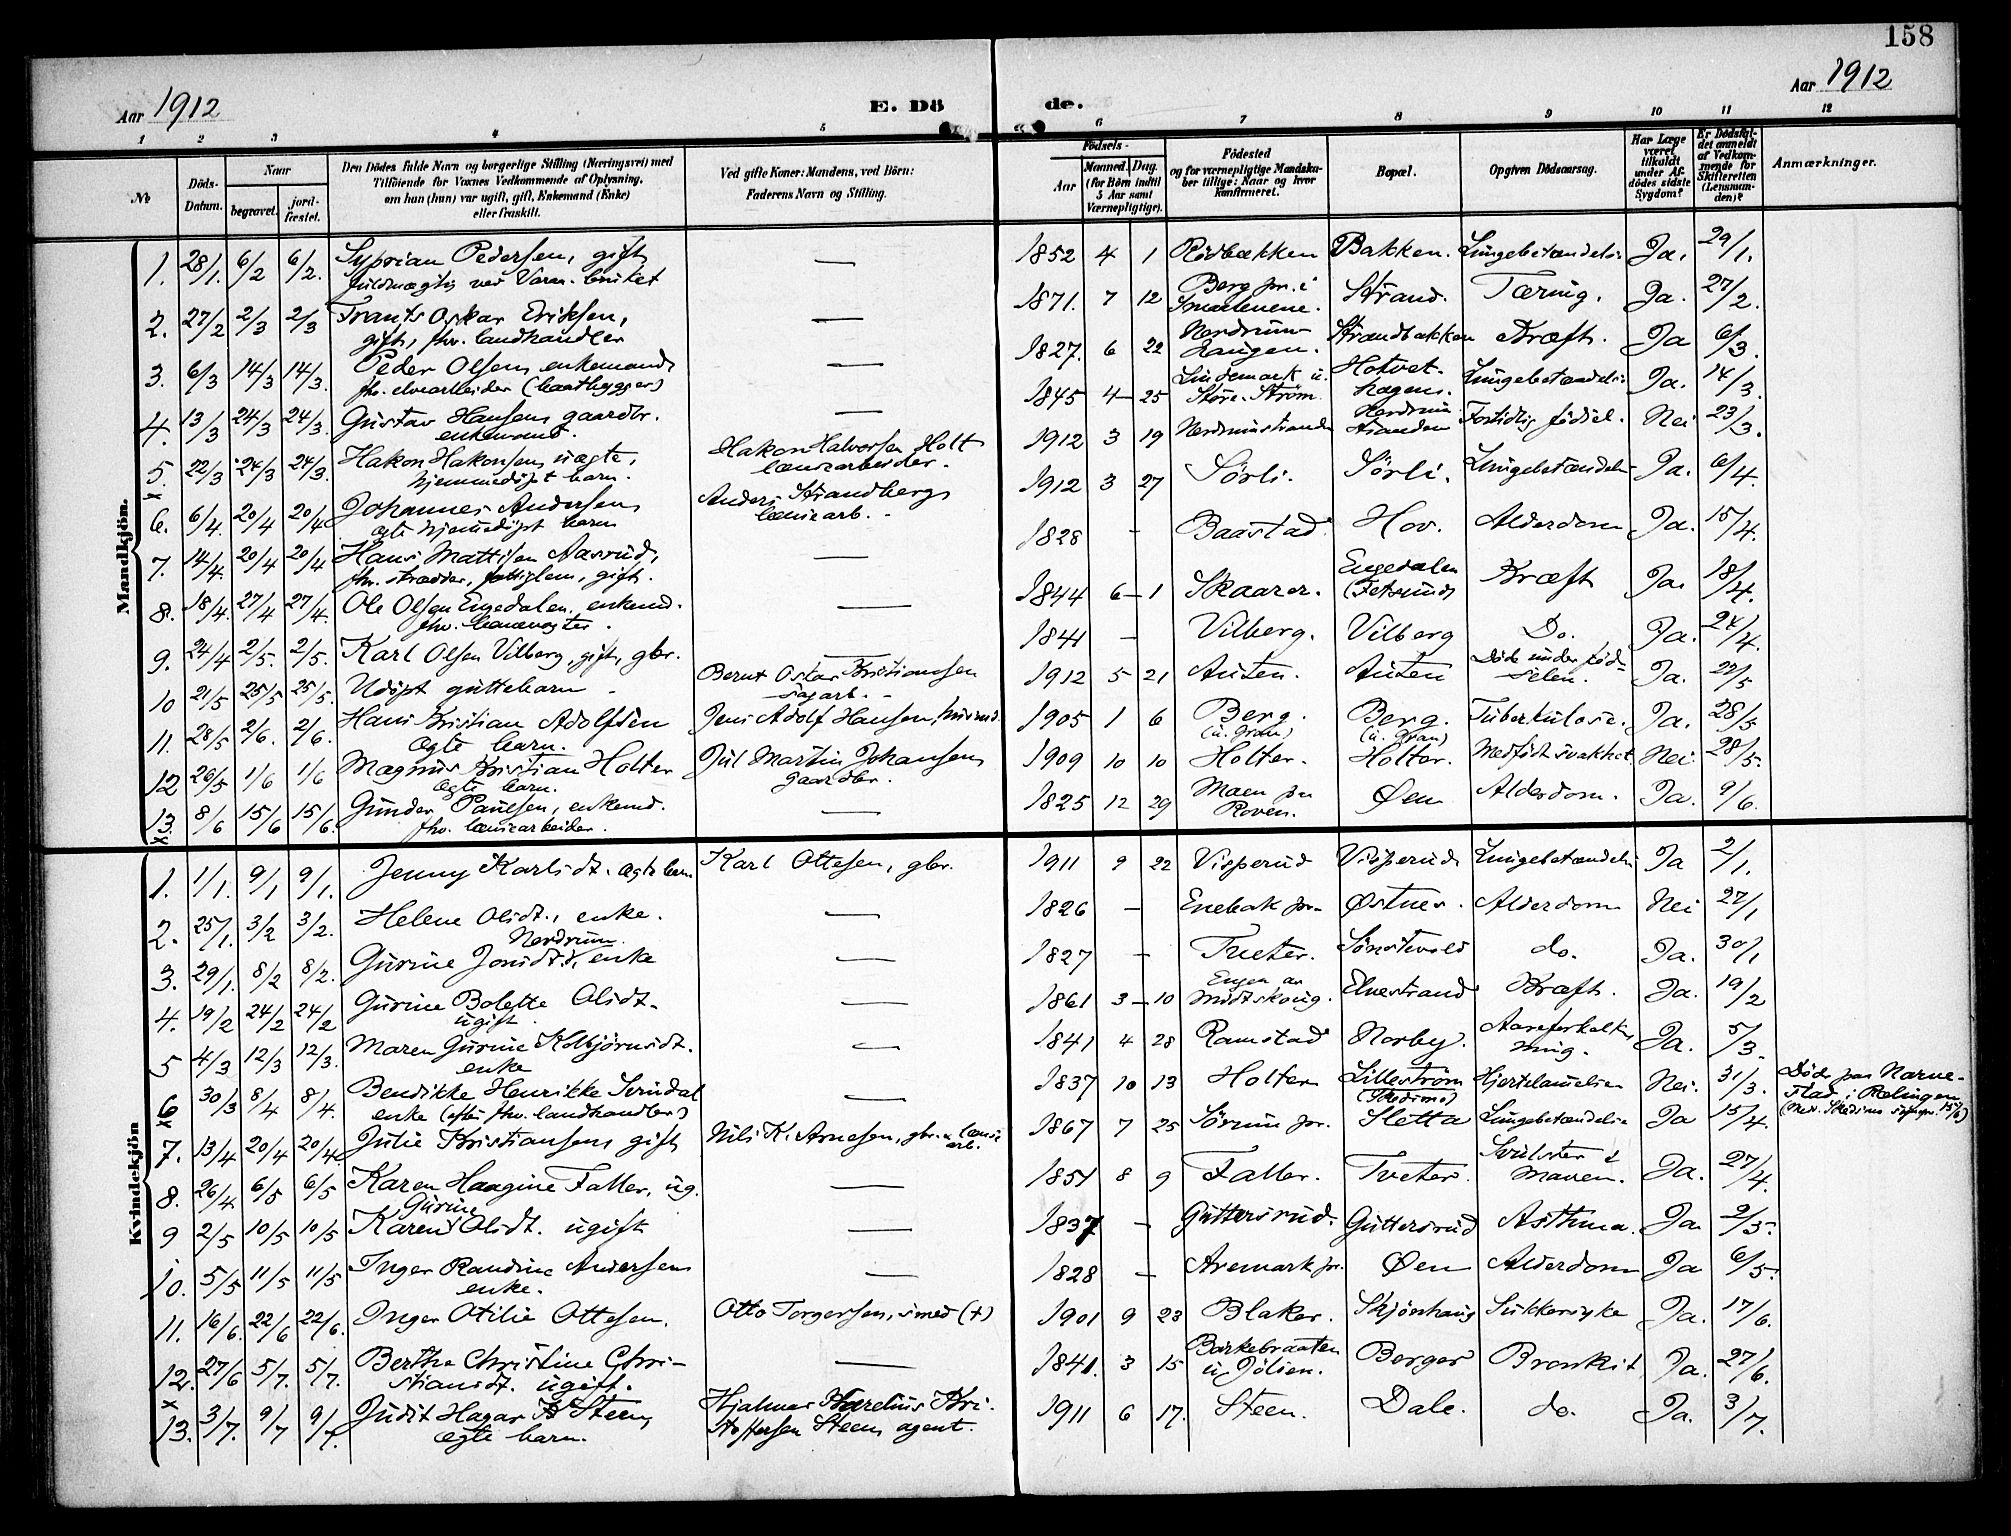 158
Aar 1912
E. Dö
de.
Aar 1912
1 2 3 4 5 6 7 8 9 10 11 12
№
Döds-Datum.
Naar
begravet.
jord-fæstet.
Den Dödes fulde Navn og borgerlige Stilling (Næringsvei) med
Tilföiende for Voxnes Vedkommende af Oplysning,
om han (hun) var ugift, gift, Enkemand (Enke)
eller fraskilt.
Ved gifte Koner: Mandens, ved Börn:
Faderens Navn og Stilling.
Födsels-
Aar
Maaned. Dag.
(for Börn indtil
5 Aar samt
Værnepligtige).
Födested
og for værnepligtige Mandska-
ber tillige: Naar og hvor
konfirmeret.
Bopæl.
Opgiven Dödsaarsag.
Har Læge
været
tilkaldt
under Af-
dödes sidste
Sygdom?
Er Dödsfal-
det anmeldt
af Vedkom-
mende for
Skifteretten
(Lensman-
den)?
Anmærkninger.
Mandkjön.
1. 28/1. 6/2 6/2. Syprian Pedersen, gift — 1852 4 1 Rödbækken Bakken. Lungebetændelse Ja. 29/1.
fuldmægtig ved Varm. bruket
2. 27/2 2/3 2/3 Frants Oskar Eriksen, — 1871. 7 12 Berg pr. i Smaalenene. Strand. Tæring. Ja. 27/2.
gift, fhv. landhandler
3. 6/3 14/3 14/3. Peder Olsen, enkemand — 1827. 6 22 Nordrum-Haugen. Strandbakken Kræft. Ja 6/3.
fhv. elvearbeider (baatbygger)
4. 13/3 24/3 24/3. Gustav Hansen, gaardbr. — 1845 4 25 Lindemark u. Store-Ström. Hotvet-hagen. Lungebetændelse Ja. 14/3.
enkemand.
5. 22/3 24/3 24/3. Hakon Hakonsen, uægte, Hakon Halvorsen Holt 1912 3 19 Nordrumstranden Nordrumstranden Fortidlig födsel. Nei 23/3.
hjemmedöpt barn. lænsearbeider.
x 6. 6/4. 20/4 20/4 Johannes Andersen Anders Strandberg, 1912 3 27 Sörli. Sörli. Lungebetændelse Ja. 6/4.
ægte hjemmedöpt barn lænsearb.
7. 14/4. 20/4 20/4 Hans Mattisen Aasrud, — 1828 — Baastad Hov. Alderdom Ja. 15/4.
fhv. skrædder, fattiglem, gift.
8. 18/4. 27/4 27/4. Ole Olsen Engedalen, enkemd. — 1844 6 1 Skaarer. Engedalen (Fetsund) Kræft Ja. 18/4.
fhv. banevogter.
9. 24/4 2/5. 2/5. Karl Olsen Vilberg, gift, gbr. — 1841 — Vilberg. Vilberg Do. Ja. 24/4.
10 21/5 25/5 25/5. Udöpt guttebarn Bernt Oskar Kristiansen 1912 5 21 Auten. Auten Döde under fød-selen. Ja. 22/5
sagarb.
11. 28/5 2/6. 2/6. Hans Kristian Adolfsen Jens Adolf Hansen, 1905 1 6 Berg. (u. Gran) Berg. (u. Gran) Tuberkulose. Ja. 28/5
ægte barn.
12 26/5 1/6 1/6 Magnus Kristian Holter Jul Martin Johansen 1909 10 10 Holter. Holter. Medfödt svakhet Nei. 28/5.
ægte barn. gaardbr.
13. x 8/6 15/6 15/6. Gunder Paulsen, enkemd. — 1825 12 29 Moen pr Roven. Øen Alderdom. Ja. 9/6.
fhv. lænsearbeider.
Kvindekjön
1. 1/1. 9/1 9/1. Jenny Karlsdt. ægte barn Karl Ottesen, gbr. 1911 9 22 Visperud Visperud Lungebetændelse Ja 2/1.
2. 25/1. 3/2 3/2. Helene Olsdt., enke. — 1826 — Enebak pr. Østnes. Alderdom Nei 27/1
Nordrum.
3. 29/1. 8/2 8/2. Gurine Jonsdt., enke — 1827 — Tueter. Sönstevold do. Ja. 30/1
4. 19/2 24/2 24/2 Gurine Bolette Olsdt. — 1861 3 10 Engen av Midtskoug. Elvestrand Kræft. Ja. 19/2
ugift.
5 4/3 12/3 12/3. Maren Gurine Kolbjørnsdt. — 1841 4 28 Ramstad Norby. Aareforkalk-ning. Ja. 5/3.
enke
x 6 30/3 8/4 8/4. Bendikke Henrikke Svindal — 1837 10 13 Holter Lilleström (Skedsmo) Hjertelammelse Nei. 31/3. Döde paa Narve-
enke (efter fhv. landhandler) stad i Rælingen
7. 13/4 20/4 20/4. Julie Kristiansen, gift Nils K. Arnesen, gbr. & lænsearb. 1867 7 25 Sörum pr. Sletta Lungebetændelse Ja 15/4.
8. 26/4 6/5 6/5 Karen Haagine Faller, ug. — 1851 8 9 Faller. Tveter. Svulster i Maven. Ja. 27/4.
9 2/5 10/5 10/5 Karen Gurine Olsdt. ugift — 1837 — Guttersrud. Guttersrud Asthma. Ja. 2/5.
10. 5/5 11/5 11/5 Inger Randine Andersen — 1828 — Aremark pr. Øen Alderdom Ja 6/5.
enke.
11. 16/6. 22/6 22/6. Inger Otilie Ottesen. Otto Torgersen, smed (+) 1901 9 23 Blaker. Skjönhaug Sukkersyke Ja. 17/6.
12. 27/6 5/7. 5/7. Berthe Christine Chri- — 1841. 3 15 Barkebraaten u. Jölsen. Berger Bronkit Ja. 27/6.
stiansdt. ugift.
x 13. 3/7. 9/7 9/7. Judit Hagar Steen, Hjalmar Kri- 1911 6 17. Steen. Dale. do. Ja. 3/7.
ægte barn. stoffersen Steen, agent.